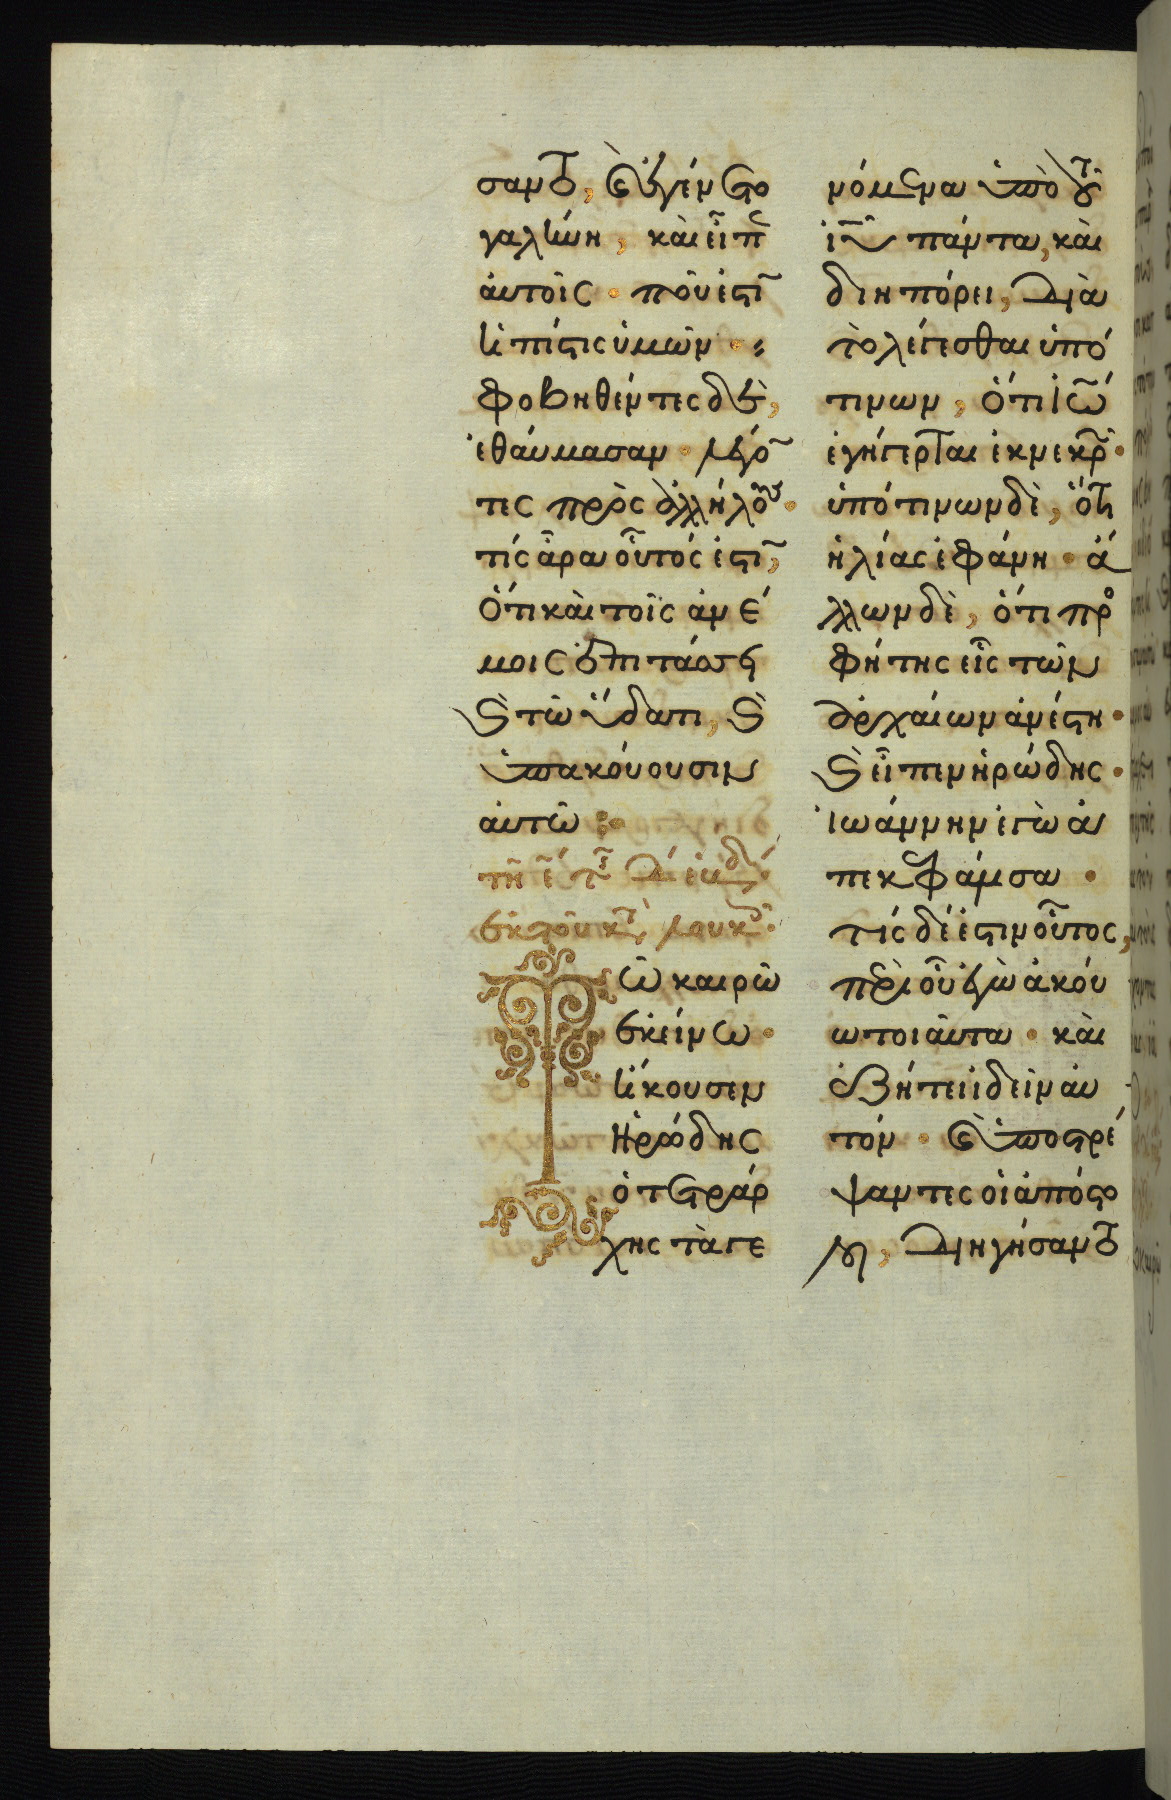 σαντο, καὶ ἐγένετο
γαλήνη, καὶ εἶπεν
αὐτοῖς· ποῦ ἐστιν
ἡ πίστις ὑμῶν·
φοβηθέντες δὲ,
ἐθαύμασαν· λέγον
τες πρὸς ἀλλήλους·
τίς ἆρα οὗτός ἐστιν,
ὅτι καὶ τοῖς ἀνέ
μοις ἐπιτάσσει
καὶ τῶ ὕδατι, καὶ
ὑπακούουσιν
αὐτῶ:
ἐκ τοῦ κατὰ λουκᾶν·
Τῶ καιρῶ
ἐκείνω·
ἤκουσεν
Ἡρώδης
ὁ τετράρ
χης τὰ γε
νόμενα ὑπὸ τοῦ
ιυ πάντα, καὶ
διηπόρει, διὰ
τὸ λέγεσθαι ὑπό
τινων, ὅτι ἰω
ἐγήγερται ἐκ νεκρῶν·
ὑπό τινων δὲ, ὅτι
ἠλίας ἐφάνη· ἄ
λλων δὲ, ὅτι προ
φήτης εἷς τῶν
ἀρχαίων ἀνέστη·
καὶ εἶπεν ἡρώδης·
ἰωάννην ἐγὼ ἀ
πεκεφάλισα·
τίς δέ ἐστιν οὗτος,
περὶ οὗ ἐγὼ ἀκού
ω τοιαῦτα· καὶ
ἐζήτει ἰδεῖν αὐ
τόν· καὶ ὑποστρέ
ψαντες οἱ ἀπόστο
λοι, διηγήσαντο